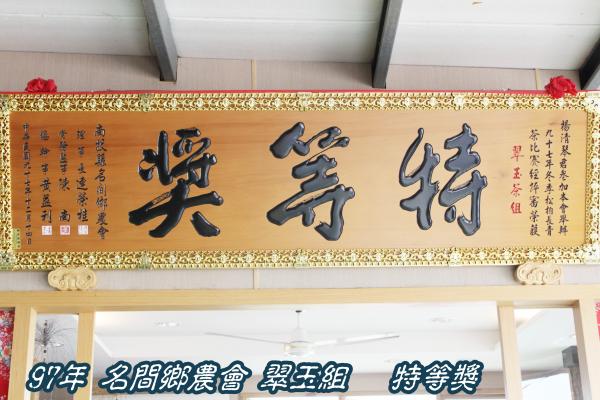 楊清琴君參加本會舉辦
九十七年冬季松柏長青
茶比賽經評審榮獲
翠玉茶組
特等獎
南投縣名間鄉農會
理事長 連榮桂
常務監事 陳尚
總幹事 黃益利
中華民國九十七年十二月十四日
97年 名間鄉農會 翠玉組 特等獎